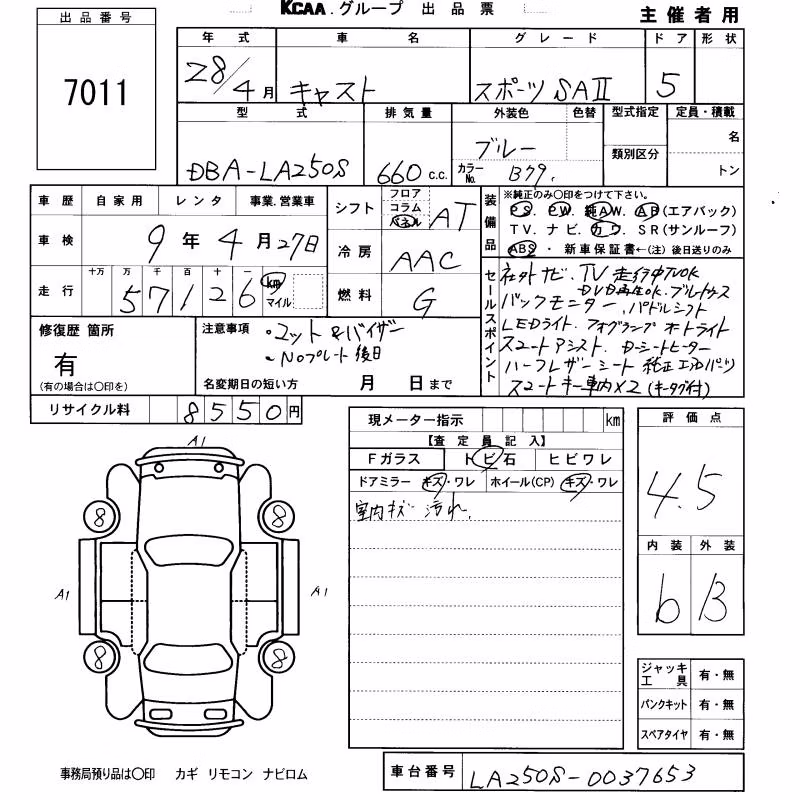 KCAA.グループ 出品票
主催者用
出品番号
7011
年式 車名 グレード ドア 形状
28/4月 キャスト スポーツSAII 5
型式 排気量 外装色 色替 型式指定 定員・積載
DBA-LA250S 660 c.c. ブルー 類別区分 名
カラーNo. B79. トン
車歴 自家用 レンタ 事業.営業車
車検 9年4月27日
走行 十万 万 千 百 十 一
57126 km マイル
シフト フロア コラム パネル AT
冷房 AAC
燃料 G
装備品 ※純正のみ○印をつけて下さい。
PS. PW. 純AW. AB(エアバック)
TV. ナビ. カワ. SR(サンルーフ)
ABS・新車保証書←(注)後日送りのみ
セールスポイント
社外ナビ、TV 走行中TVOK
DVD再生OK.ブルトゥース
バックモニター、パドルシフト
LEDライト、フォグランプ オートライト
スマートアシスト、Dシートヒーター
ハーフレザーシート 純正エアロパーツ
スマートキー車内×2(キータグ付)
修復歴 箇所
有
(有の場合は○印を)
注意事項 ・マット&バイザー
・Noプレート後日
名変期日の短い方 月 日まで
リサイクル料 8550円
現メーター指示 km
【査定員記入】
Fガラス トビ石 ヒビワレ
ドアミラー キズ・ワレ ホイール(CP) キズ・ワレ
室内キズ 汚れ.
評価点
4.5
内装 外装
b B
A1
8 8
A1 A1
8 8
ジャッキ工具 有・無
パンクキット 有・無
スペアタイヤ 有・無
事務局預り品は○印 カギ リモコン ナビロム
車台番号 LA250S-0037653